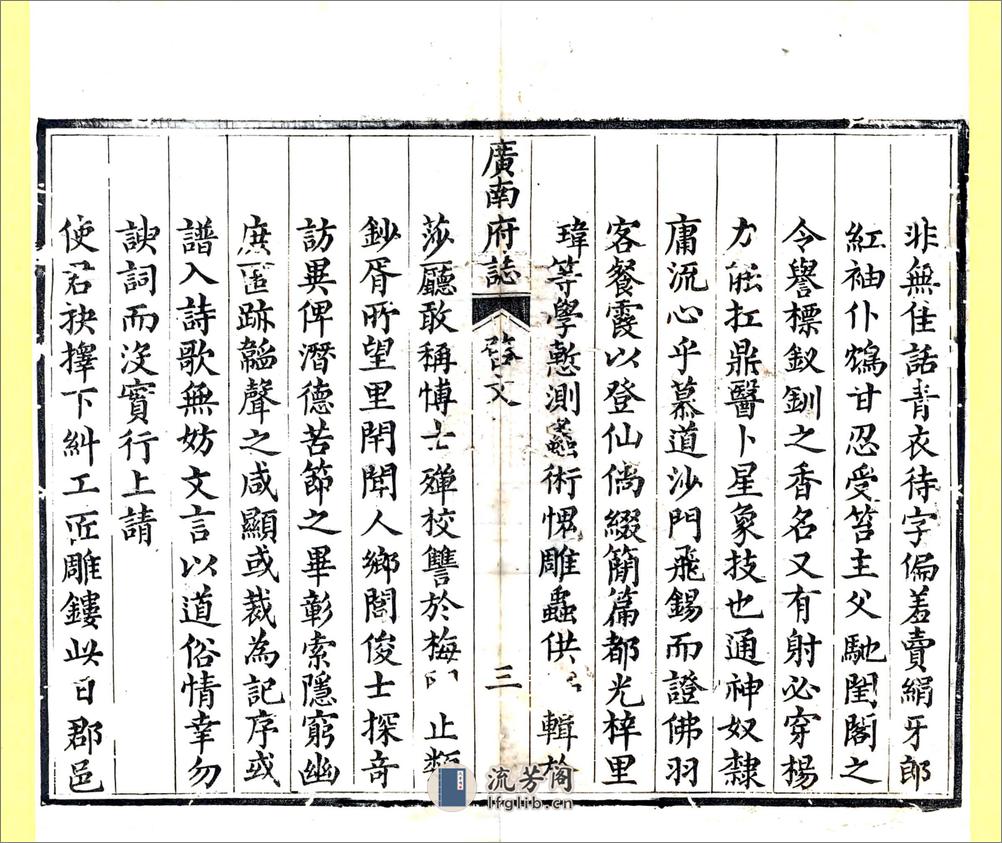 非無佳話青衣待字偏羞賣絹牙郎
紅袖仆鴆甘忍受笞主父馳閨閣之
令譽標釵釧之香名又有射必穿楊
力能扛鼎醫卜星象技也通神奴隸
庸流心乎慕道沙門飛錫而證佛羽
客餐霞以登仙倘綴簡篇都光梓里
瑋等學慙測蠡術愧雕蟲供輯於
廣南府誌
啓文
三
莎廳敢稱博士殫校讐於梅止類
鈔胥所望里閈聞人鄉閭俊士探奇
訪異俾潛德苦節之畢彰索隱窮幽
庶匿跡韜聲之咸顯或裁為記序或
譜入詩歌無妨文言以道俗情幸勿
諛詞而没實行上請
使君抉擇下糾工匠雕鏤此日郡邑
流芳阁
lfglib.cn